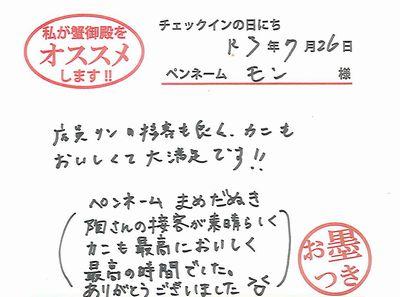 私が蟹御殿を
オススメ
します!!
チェックインの日にち
R3年7月26日
ペンネーム モン 様
店員サンの接客も良く、カニも
おいしくて大満足です!!
ペンネーム まめだぬき
陽さんの接客が素晴らしく
カニも最高においしく
最高の時間でした。
ありがとうございました
お墨
つき